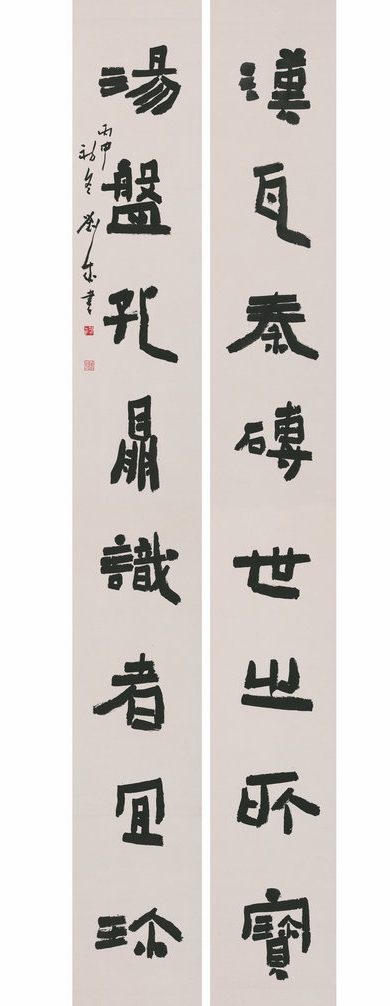 漢瓦秦磚世之所寶
湯盤孔鼎識者宜珍
丙申
初冬劉成書